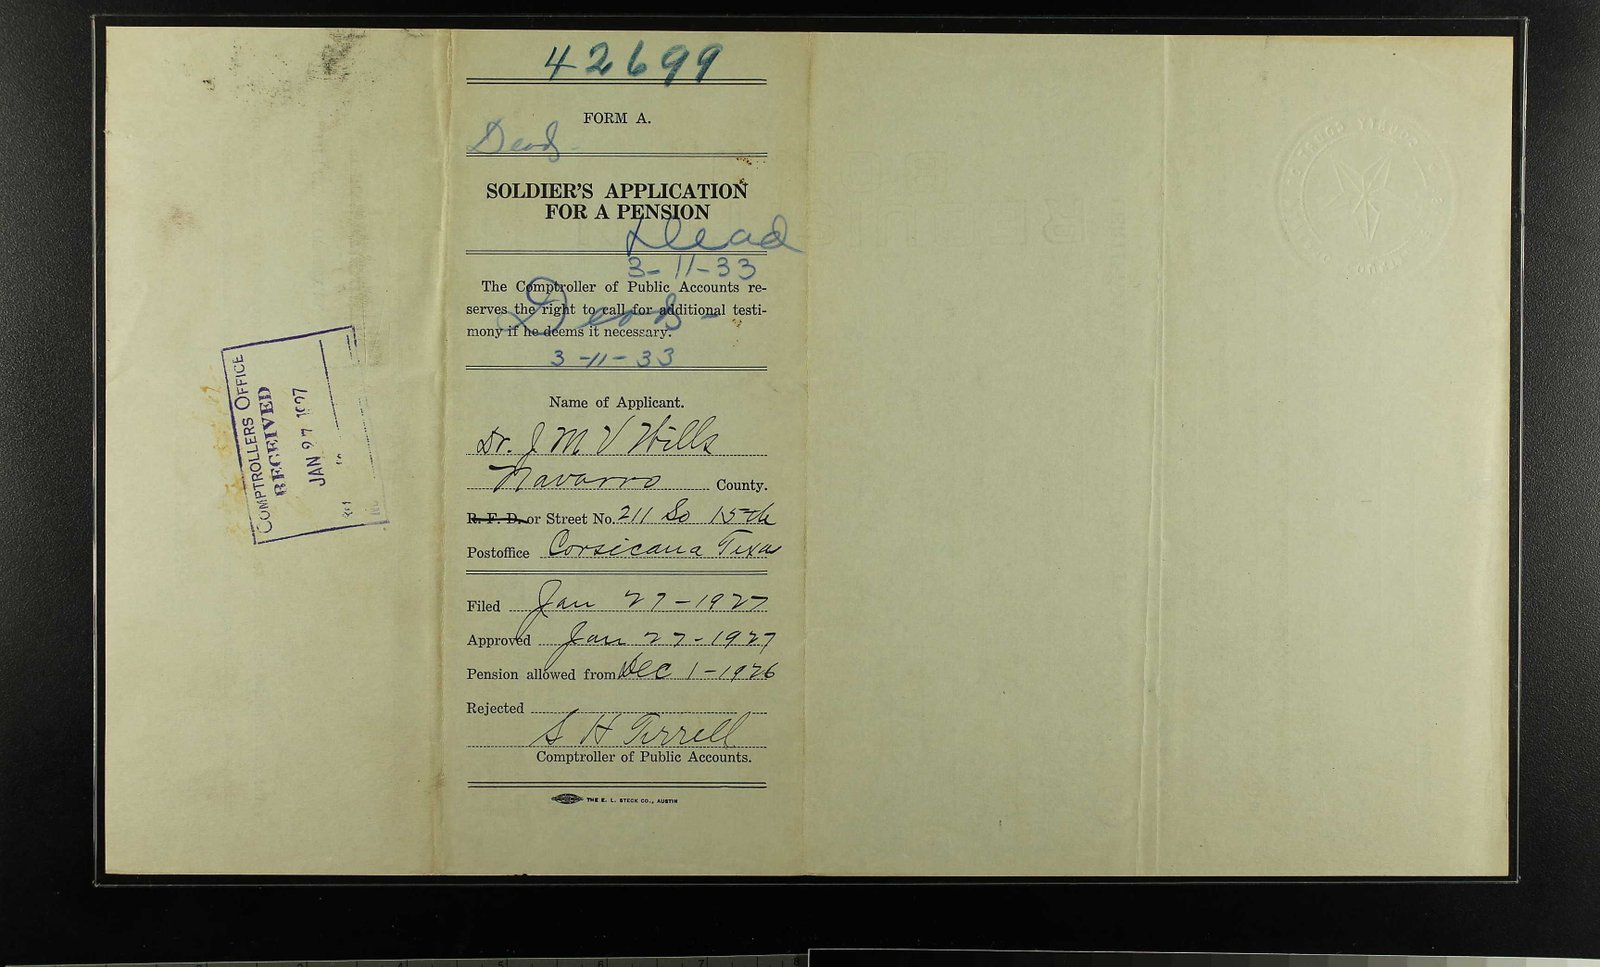 42699
FORM A.
Dead-
SOLDIER'S APPLICATION
FOR A PENSION
Dead
3-11-33
The Comptroller of Public Accounts re-
serves the right to call for additional testi-
mony if he deems it necessary.
Dead-
3-11-33
Name of Applicant.
Dr. J M V Wills
Navarro County.
R. F. D. or Street No. 211 So 15th
Postoffice Corsicana Texas
Filed Jan 27-1927
Approved Jan 27-1927
Pension allowed from Dec 1-1926
Rejected
S H Terrell
Comptroller of Public Accounts.
THE E. L. STECK CO., AUSTIN
COMPTROLLERS OFFICE
RECEIVED
JAN 27 1927
COUNTY COURT